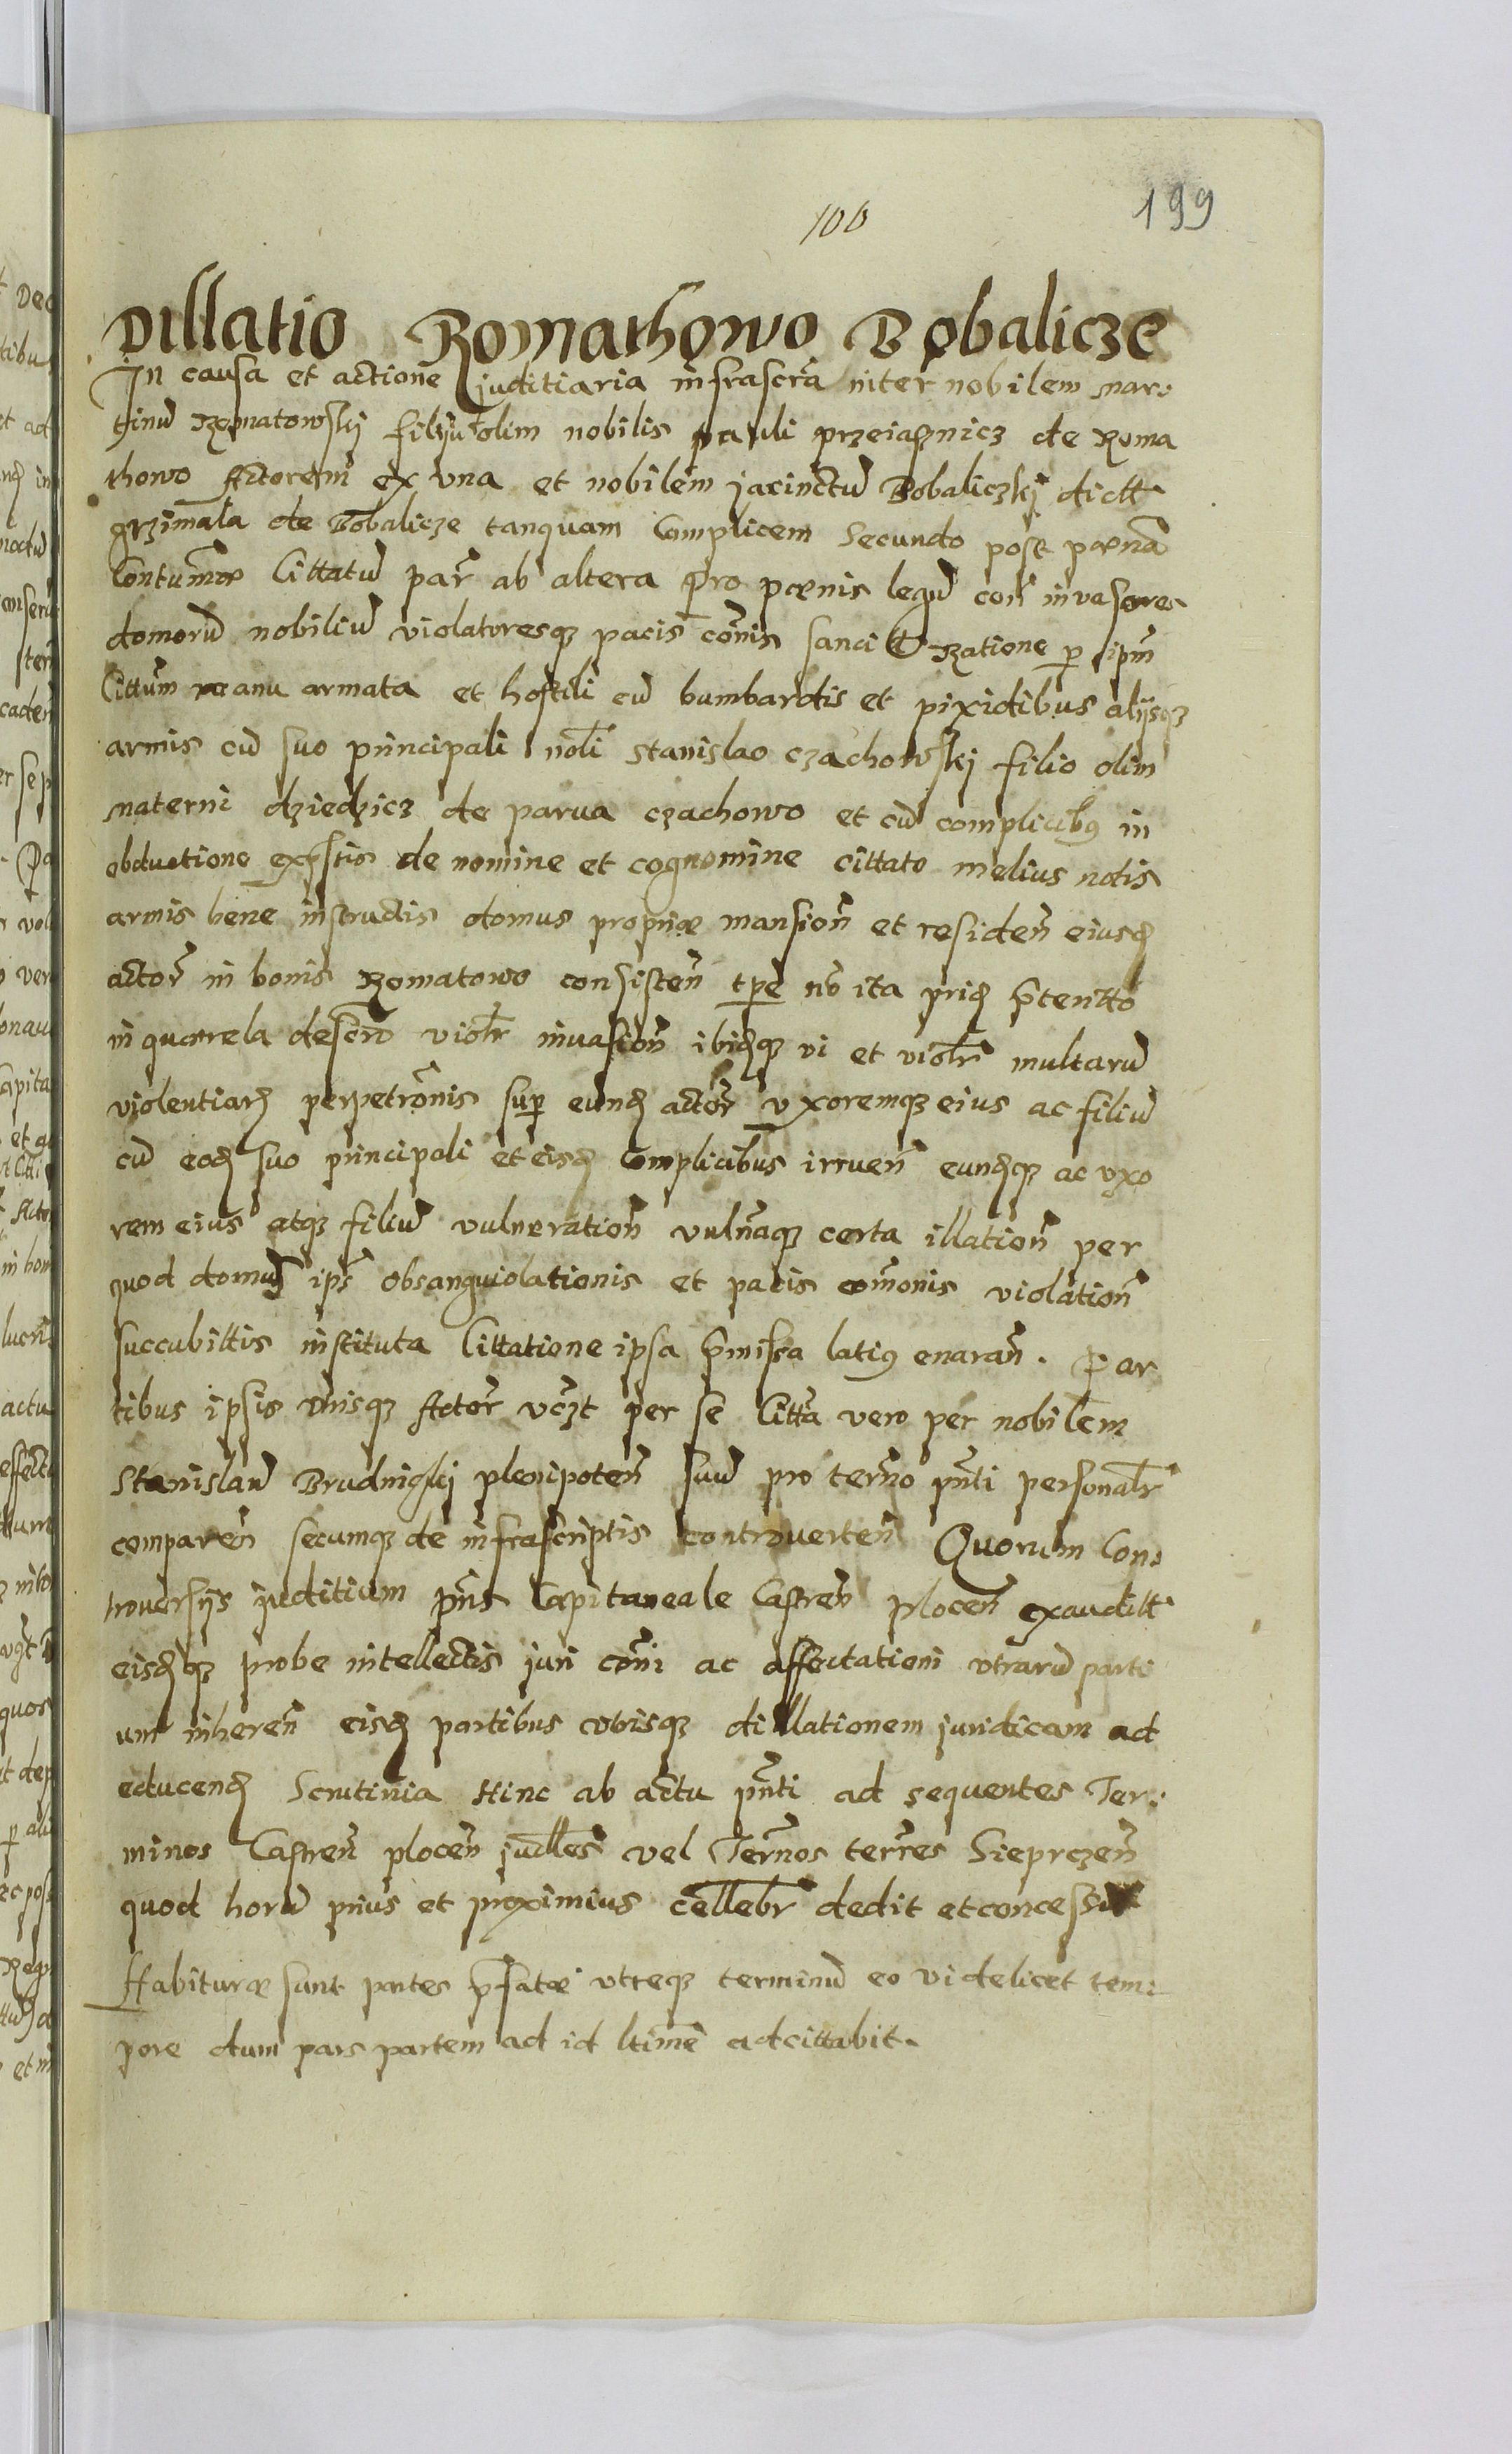 100
199
Dillatio Romathowo Bobalicze
In causa et actione juditiaria infrascra inter nobilem mar:
tinu Romatowskj filiju olim nobilis pauli przeiaznicz de Roma
thowo Actorem ex una et nobilem jacinctu Bobaliczkj dictt
grzimala de Bobalicze tanquam Complicem Secundo post pœna
Contumœ Cittatu par ab altera pro pœnis legu con invasores
domoru nobiliu violatoresqz pacis cois sancitt Ratione p ipm
Cittum manu armata et hostili cu bumbardis et pixidibus alijsqz
armis cu suo principali noli Stanislao czachowskj filio olim
materni dziedzicz de parva czachowo et cu complicibg in
obductione expstis de nomine et cognomine cittato melius notis
armis bene instructis domus propriæ mansion et residen eiusd
actor in bonis Romatowo consisten tpe nō ita prid prtentto
in quærela descro violr invasion ibidqz vi et violr multaru
violentiard perpetronis sup eund actor uxoremqz eius ac filiu
cu eod suo principali et eisd Complicibus irruen eundqz ac uxo
rem eius atqz filiu vulneration vulnaqz certa illation per
quod domus ips obsanguiolationis et pacis comonis violation
succubittis instituta Cittatione ipsa pmissa latig enaran. Par
tibus ipsis Actor vczt per se Citta vero per nobilem
Stanislau Brudnickj plenipoten suu pro termo pnti personalr
comparen secumqz de infrascriptis controverten Quorum Con:
troversijs juditium pns Capitaneale Castren plocen exauditt
eisdqz probe intellectis juri comi ac affectationi utraru parti
um inheren eisd partibus dillationem juridicam ad
educend Scrutinia Hinc ab actu pnti ad sequentes Ter:
minos Castren plocen judles vel Termos terres Sieprczen
quod horu prius et proximius cellebr dedit et concessit
Habituræ sunt partes pfatæ utreqz terminu eo videlicet tem:
pore dum pars partem ad id ltime adcittabit.